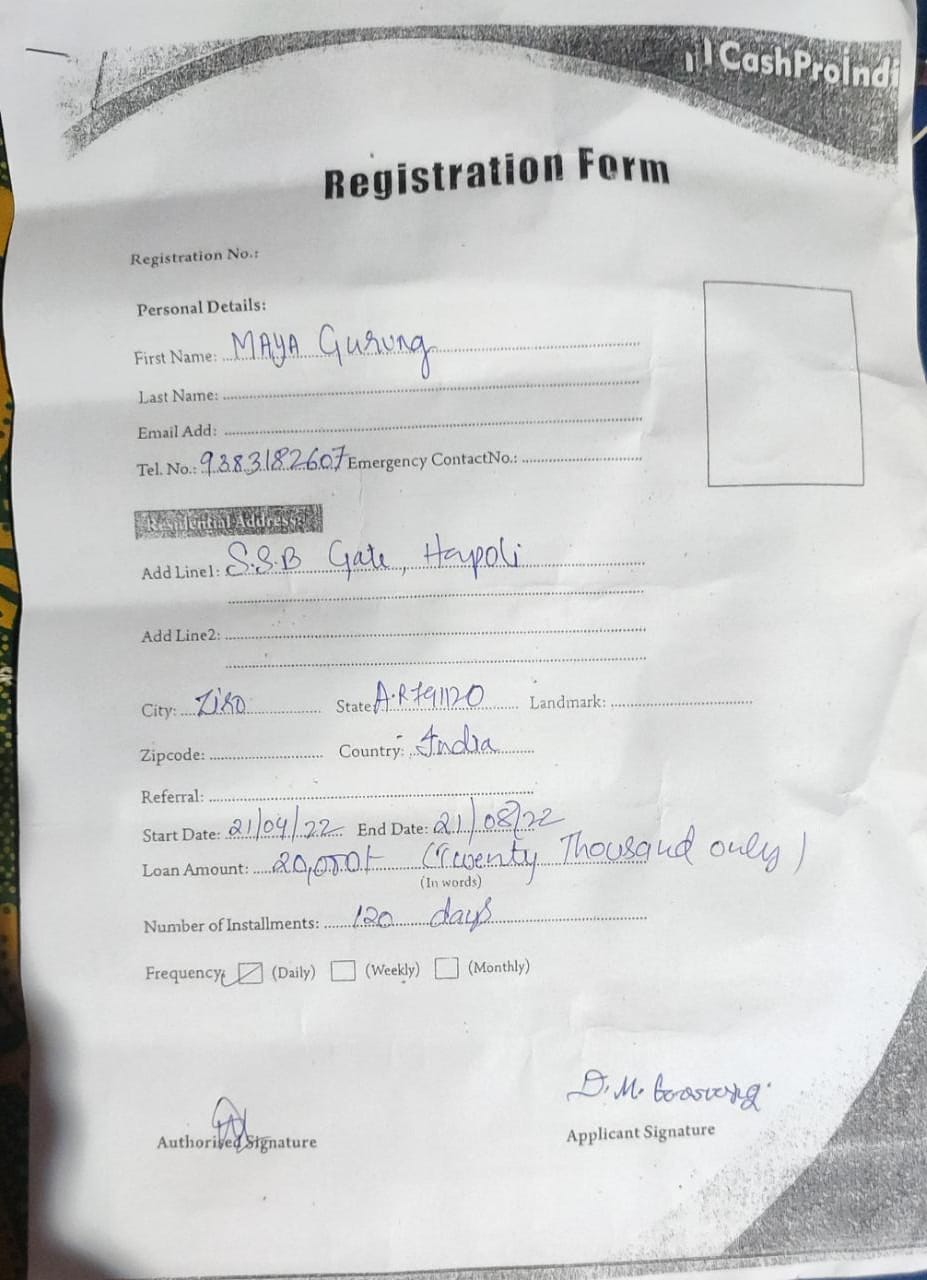 CashProIndi
Registration Form
Registration No.:
Personal Details:
First Name: MAYA Gurung
Last Name:
Email Add:
Tel. No.: 9383182607 Emergency ContactNo.:
Residential Address:
Add Line1: S.S.B Gate, Hapoli
Add Line2:
City: Ziro State A.R 791120 Landmark:
Zipcode: Country: India
Referral:
Start Date: 21/04/22 End Date: 21/08/22
Loan Amount: 20,000/- (Twenty Thousand only)
(In words)
Number of Installments: 120 days
Frequency: (Daily) (Weekly) (Monthly)
D. M.
Authorised Signature Applicant Signature